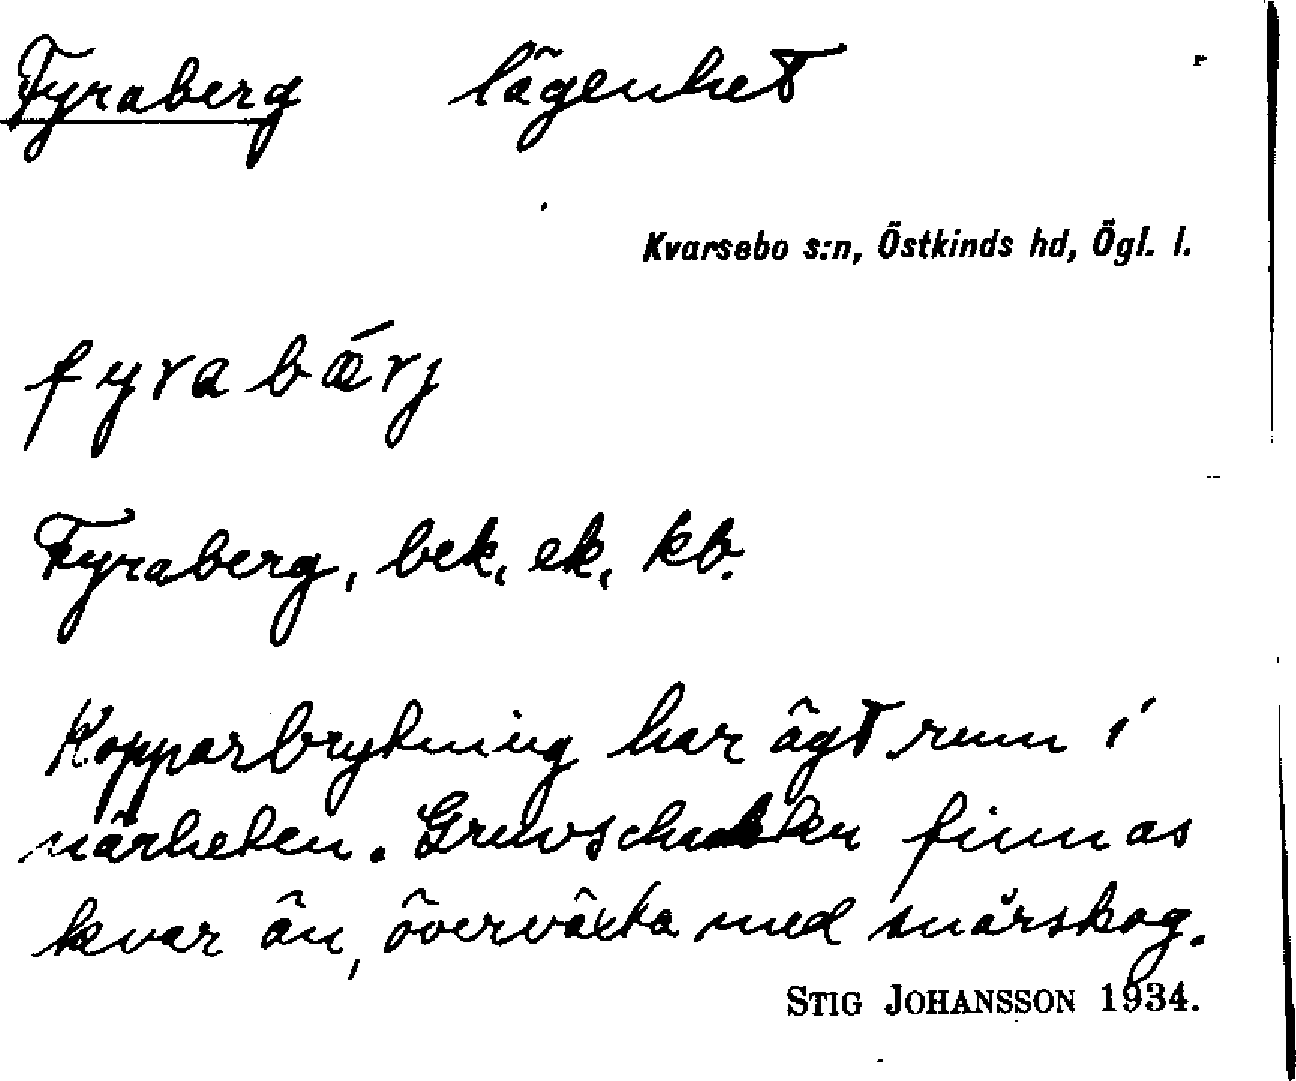 Fyraberg lägenhet
Kvarsebo s:n, Östkinds hd, Ögl. l.
fyrabǽrj
Fyraberg, bek, ek, kb.
Kopparbrytning har ägt rum i
närheten. Gruvschakten finnas
kvar än, överväxta med snårskog.
STIG JOHANSSON 1934.